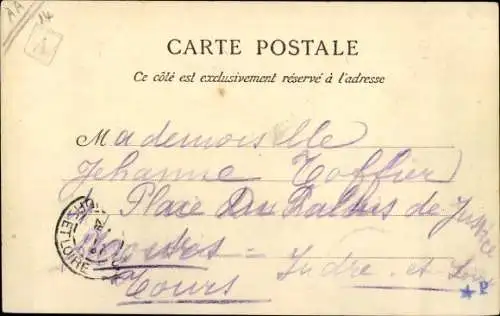 AA
14
A
CARTE POSTALE
Ce côté est exclusivement réservé à l'adresse
Mademoiselle
Jehanne Toffier
Place Du Palais de Justice
Tours
Indre et Loire
Tours
ET LOIRE